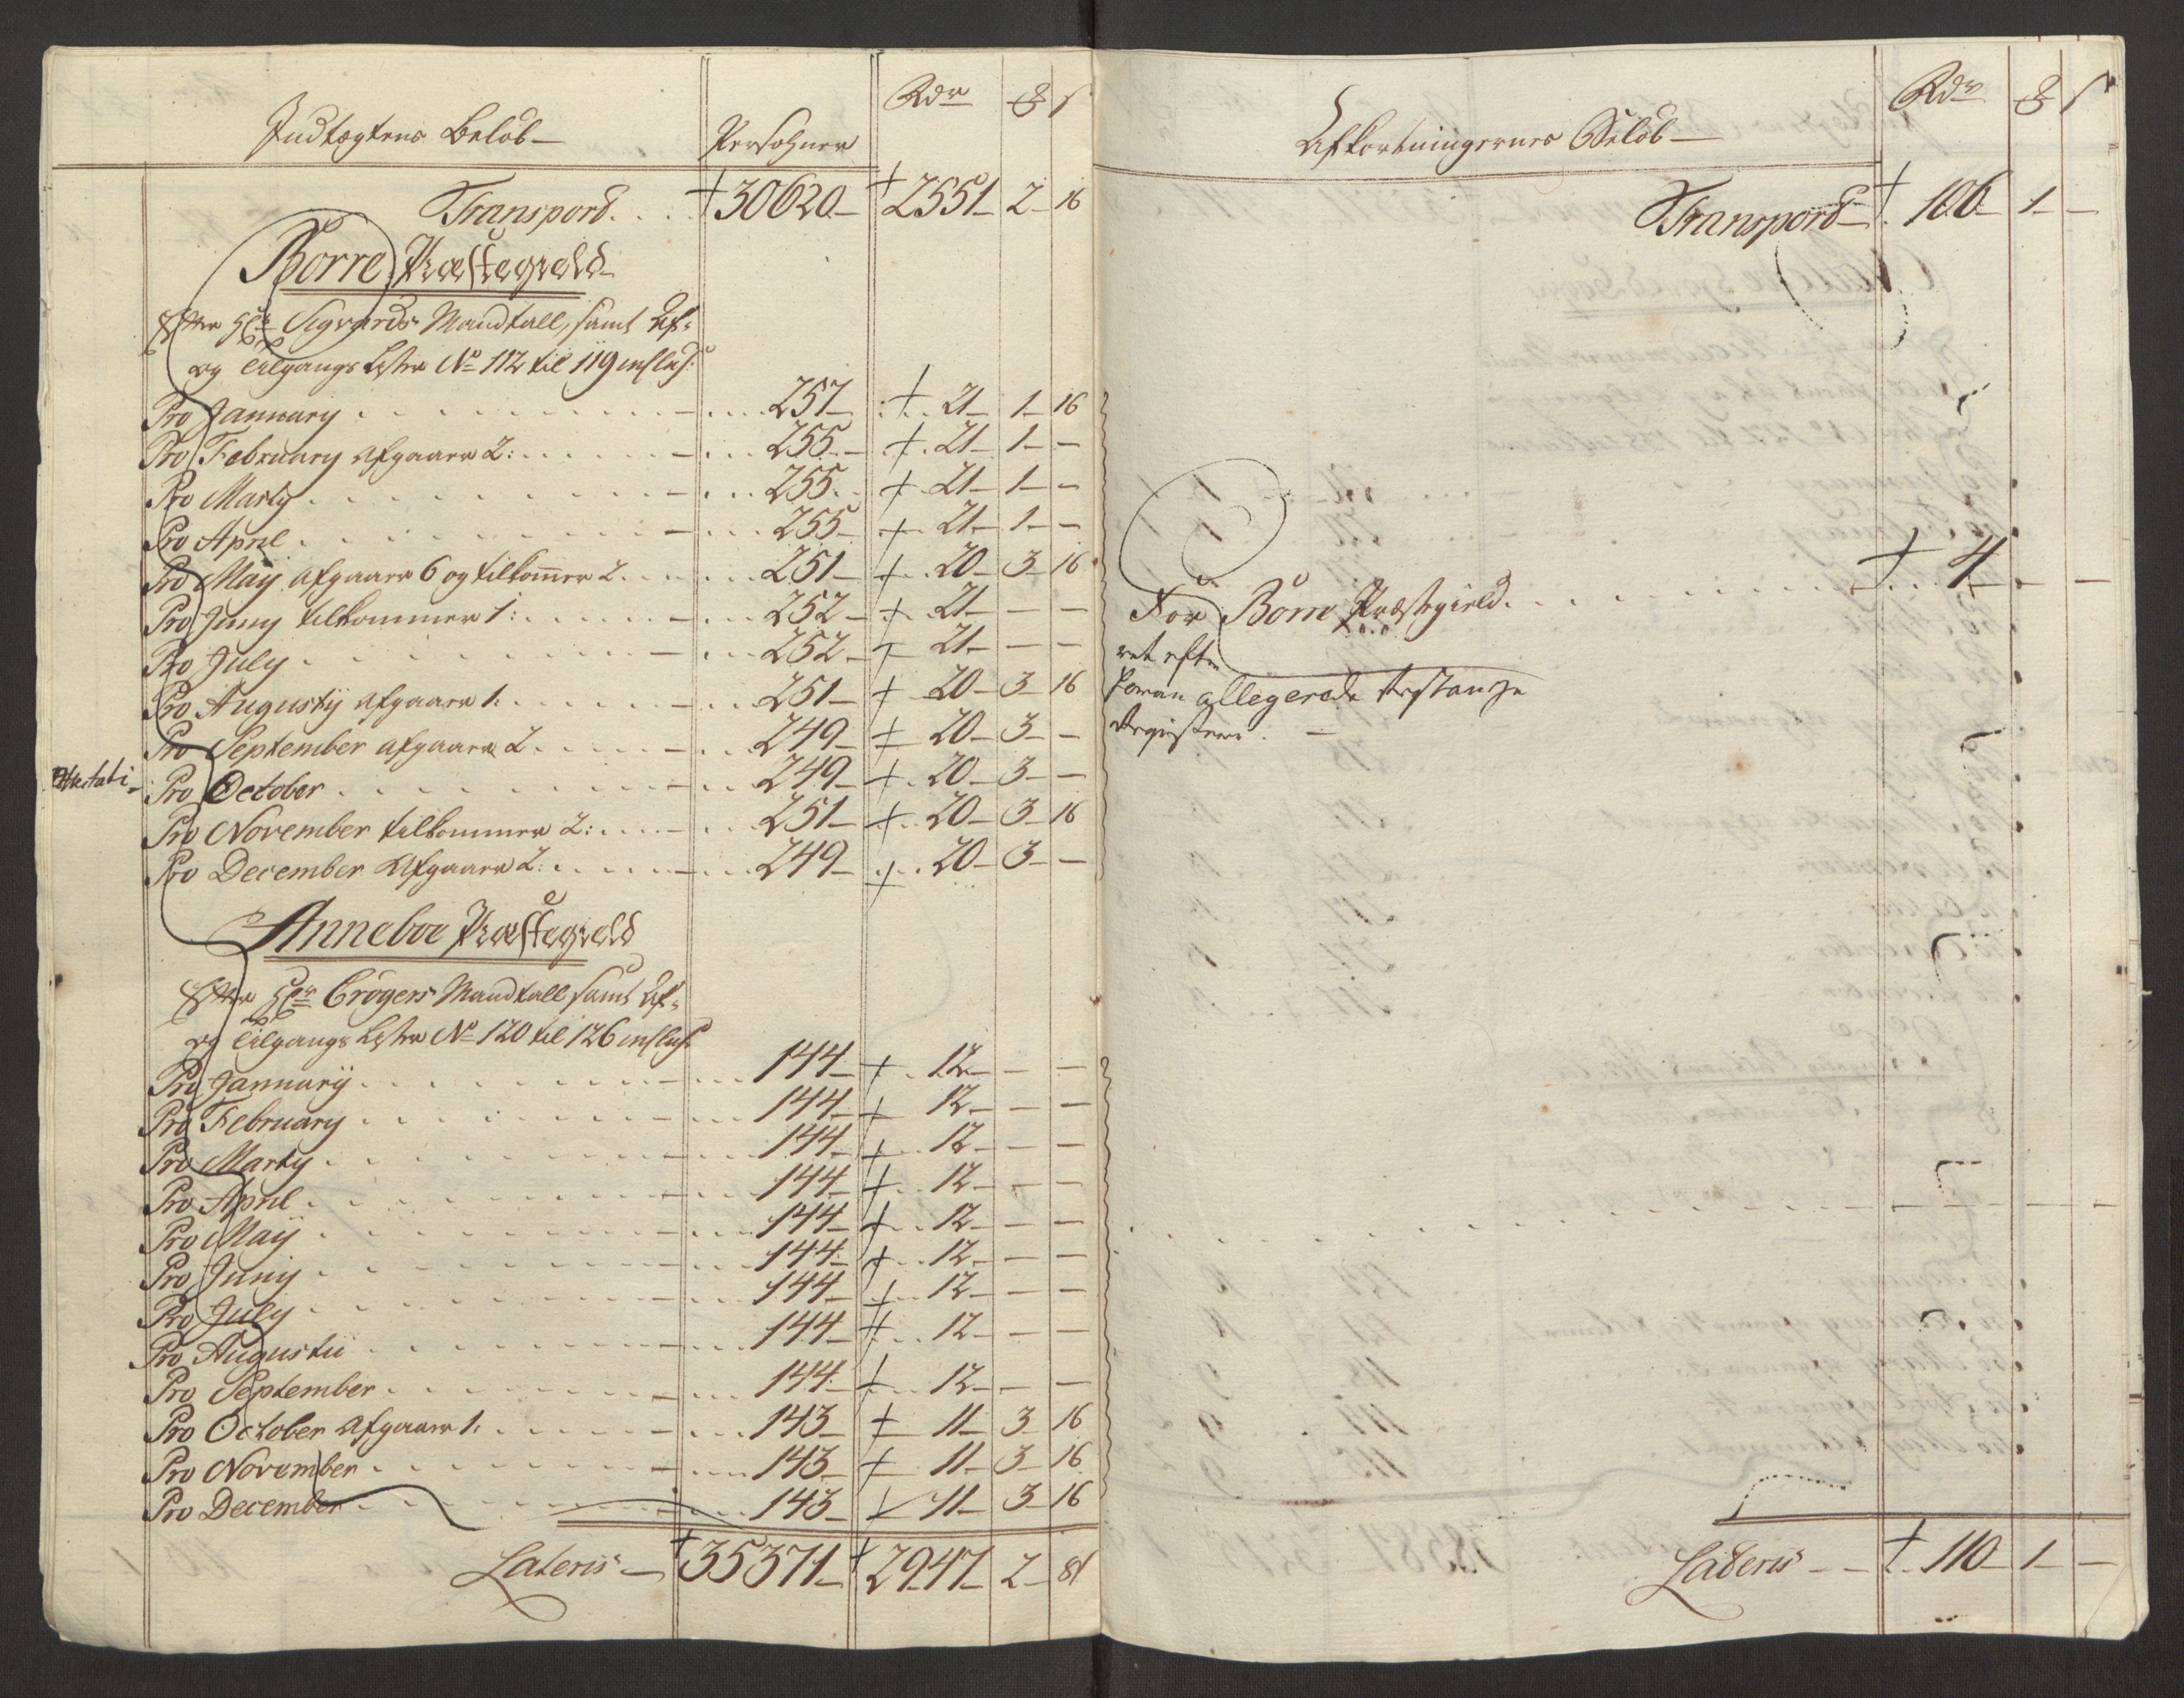 Rdr ẞ s
Indtægtens Beløb — Persohner
Transpord . . . 30620 — 2551 — 2 — 16
Borre Præstegield
Efter Hr: Sigvards Mandtall, samt Af=
og Tilgangs Lister No 112 til 119 inclus:
Pro January . . . 257 — 21 — 1 — 16
Pro February afgaaer 2: . . . 255 — 21 — 1 — —
Pro Marty . . . 255 — 21 — 1 — —
Pro April . . . 255 — 21 — 1 — —
Pro Maij afgaaer 6 og tilkom̄er 2 . . . 251 — 20 — 3 — 16
Pro Juny tilkommer 1: . . . 252 — 21 — — —
Pro July . . . 252 — 21 — — —
Pro Augustij afgaaer 1: . . . 251 — 20 — 3 — 16
Pro September afgaaer 2 . . . 249 — 20 — 3 — —
Pro October . . . 249 — 20 — 3 — —
Pro November tilkommer 2: . . . 251 — 20 — 3 — 16
Pro December Afgaaer 2: . . . 249 — 20 — 3 — —
Anneboe Præstegield
Efter Hr Crögers Mandtall samt Af=
og Tilgangs Lister No 120 til 126 inclus:
Pro Januarij . . . 144 — 12 — — —
Pro February . . . 144 — 12 — — —
Pro Marty . . . 144 — 12 — — —
Pro April . . . 144 — 12 — — —
Pro Maij . . . 144 — 12 — — —
Pro Juny . . . 144 — 12 — — —
Pro July . . . 144 — 12 — — —
Pro Augustii . . . 144 — 12 — — —
Pro September . . . 144 — 12 — — —
Pro October Afgaaer 1. . . . 143 — 11 — 3 — 16
Pro November . . . 143 — 11 — 3 — 16
Pro December . . . 143 — 11 — 3 — 16
Lateris — 35371 — 2947 — 2 — 8
Rdr ẞ s
Afkortningernes Beløb —
Transpord — 106 — 1 — —
For Borre Præstegield . . . 4 — — —
ret efter
allegerede
Registere . —
Lateris — — 110 — 1 — —